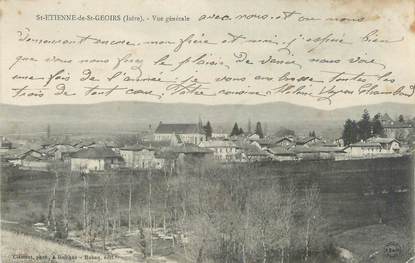 St-ETIENNE-de-St-GEOIRS (Isère). - Vue générale
avec nous. et on nous
encore mon frère et moi. j'espère bien
que vous nous ferez le plaisir de venir nous voir
une fois de l'année. je vous embrasse toutes les
trois de tout cœur. Votre cousine
Clément, phot.
édit.